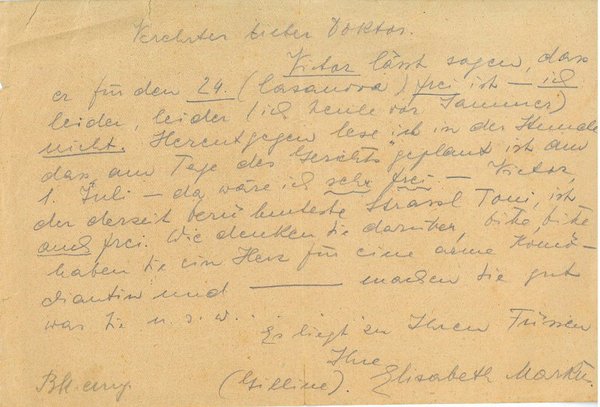 Verehrter lieber Doktor.
Victor lässt sagen, dass
er für den 24. (Casanova) frei ist – ich
leider, leider (ich heule vor Jammer)
nicht. Herentgegen lese ich in der Stunde
dass am Tage des Gerichts" geplant ist am
1. Juli – da wäre ich sehr frei – Victor,
der derzeit berühmteste Strassl Toni, ist
auch frei. Wie denken Sie darüber, bitte, bitte
haben Sie ein Herz für eine arme Komö-
diantin und ——— machen Sie gut
was Sie u. s. w.
Es liegt zu Ihren Füssen
Ihre
(Gilline). Elisabeth Markus.